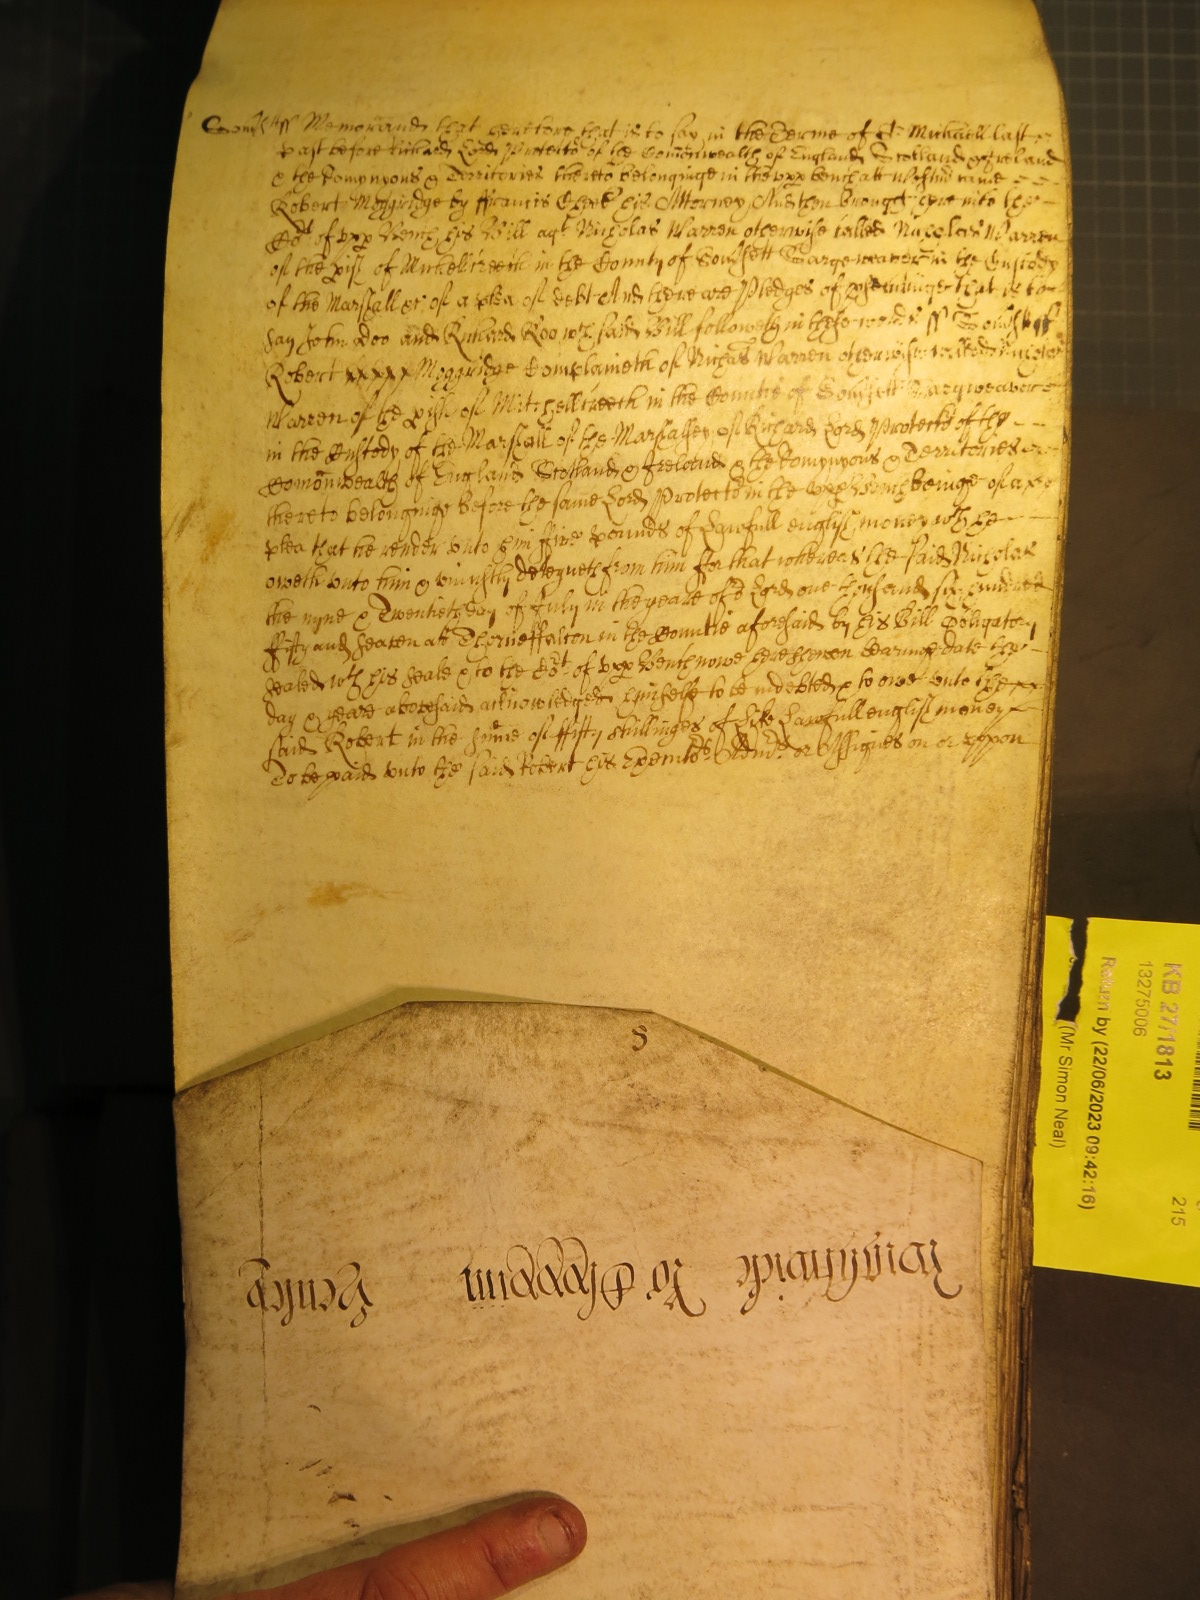 Somst ss Memorand that heretofore that is to say in the Terme of St Michaell last
past before Richard Lord Protector of the Comonwealth of England Scotland & Ireland
& the Domynyons & Territories thereto belonginge in the upp bench att Westmr came
Robert Moggridge by ffrancis his Attorney And then brought here into the
Cot of upp Bench his Bill agt Nicholas Warren otherwise called Nicholas Warren
of the pish of Michelcreech in the County of Somsett Sargeweaver in the Custody
of the Marshall &c of a plea of debt And there are Pledges of psecutinge that is to
say John Doo and Richard Roo wch said Bill followeth in these words ss Somst ss
Robert Moggridge Complaineth of Nichas Warren otherwise called Nicholas
Warren of the pish of Mitchellcreech in the Countie of Somsett Sargweaver
in the Custody of the Marshall of the Marshalsey of Richard Lord Protector of the
Comonwealth of England Scotland & Ireland & the Domynyons & Territories
thereto belonginge before the same Lord Protector in the upp Bench beinge of a
plea that he render unto him five pounds of Lawfull english money wch he
oweth unto him & uniustly deteyneth from him ffor that whereas the said Nicholas
the nyne & Twentieth day of July in the yeare of or Lord one thousand six hundred
ffifty and seaven att Thorneffalcon in the Countie aforesaid by his Bill Obligatory
sealed wth his seale & to the Cot of upp Bench nowe here shewen bearinge date the
day & yeare abovesaid acknowledged himselfe to be indebted & to owe unto the
said Robert in the sume of ffifty shillinges of like Lawfull english money
To be paid unto the said Robert his Executors Admrs or Assignes on or uppon
S
Henley
KB 27/1813
13275006
Return by (22/06/2023 09:42:16)
(Mr Simon Neal)
215